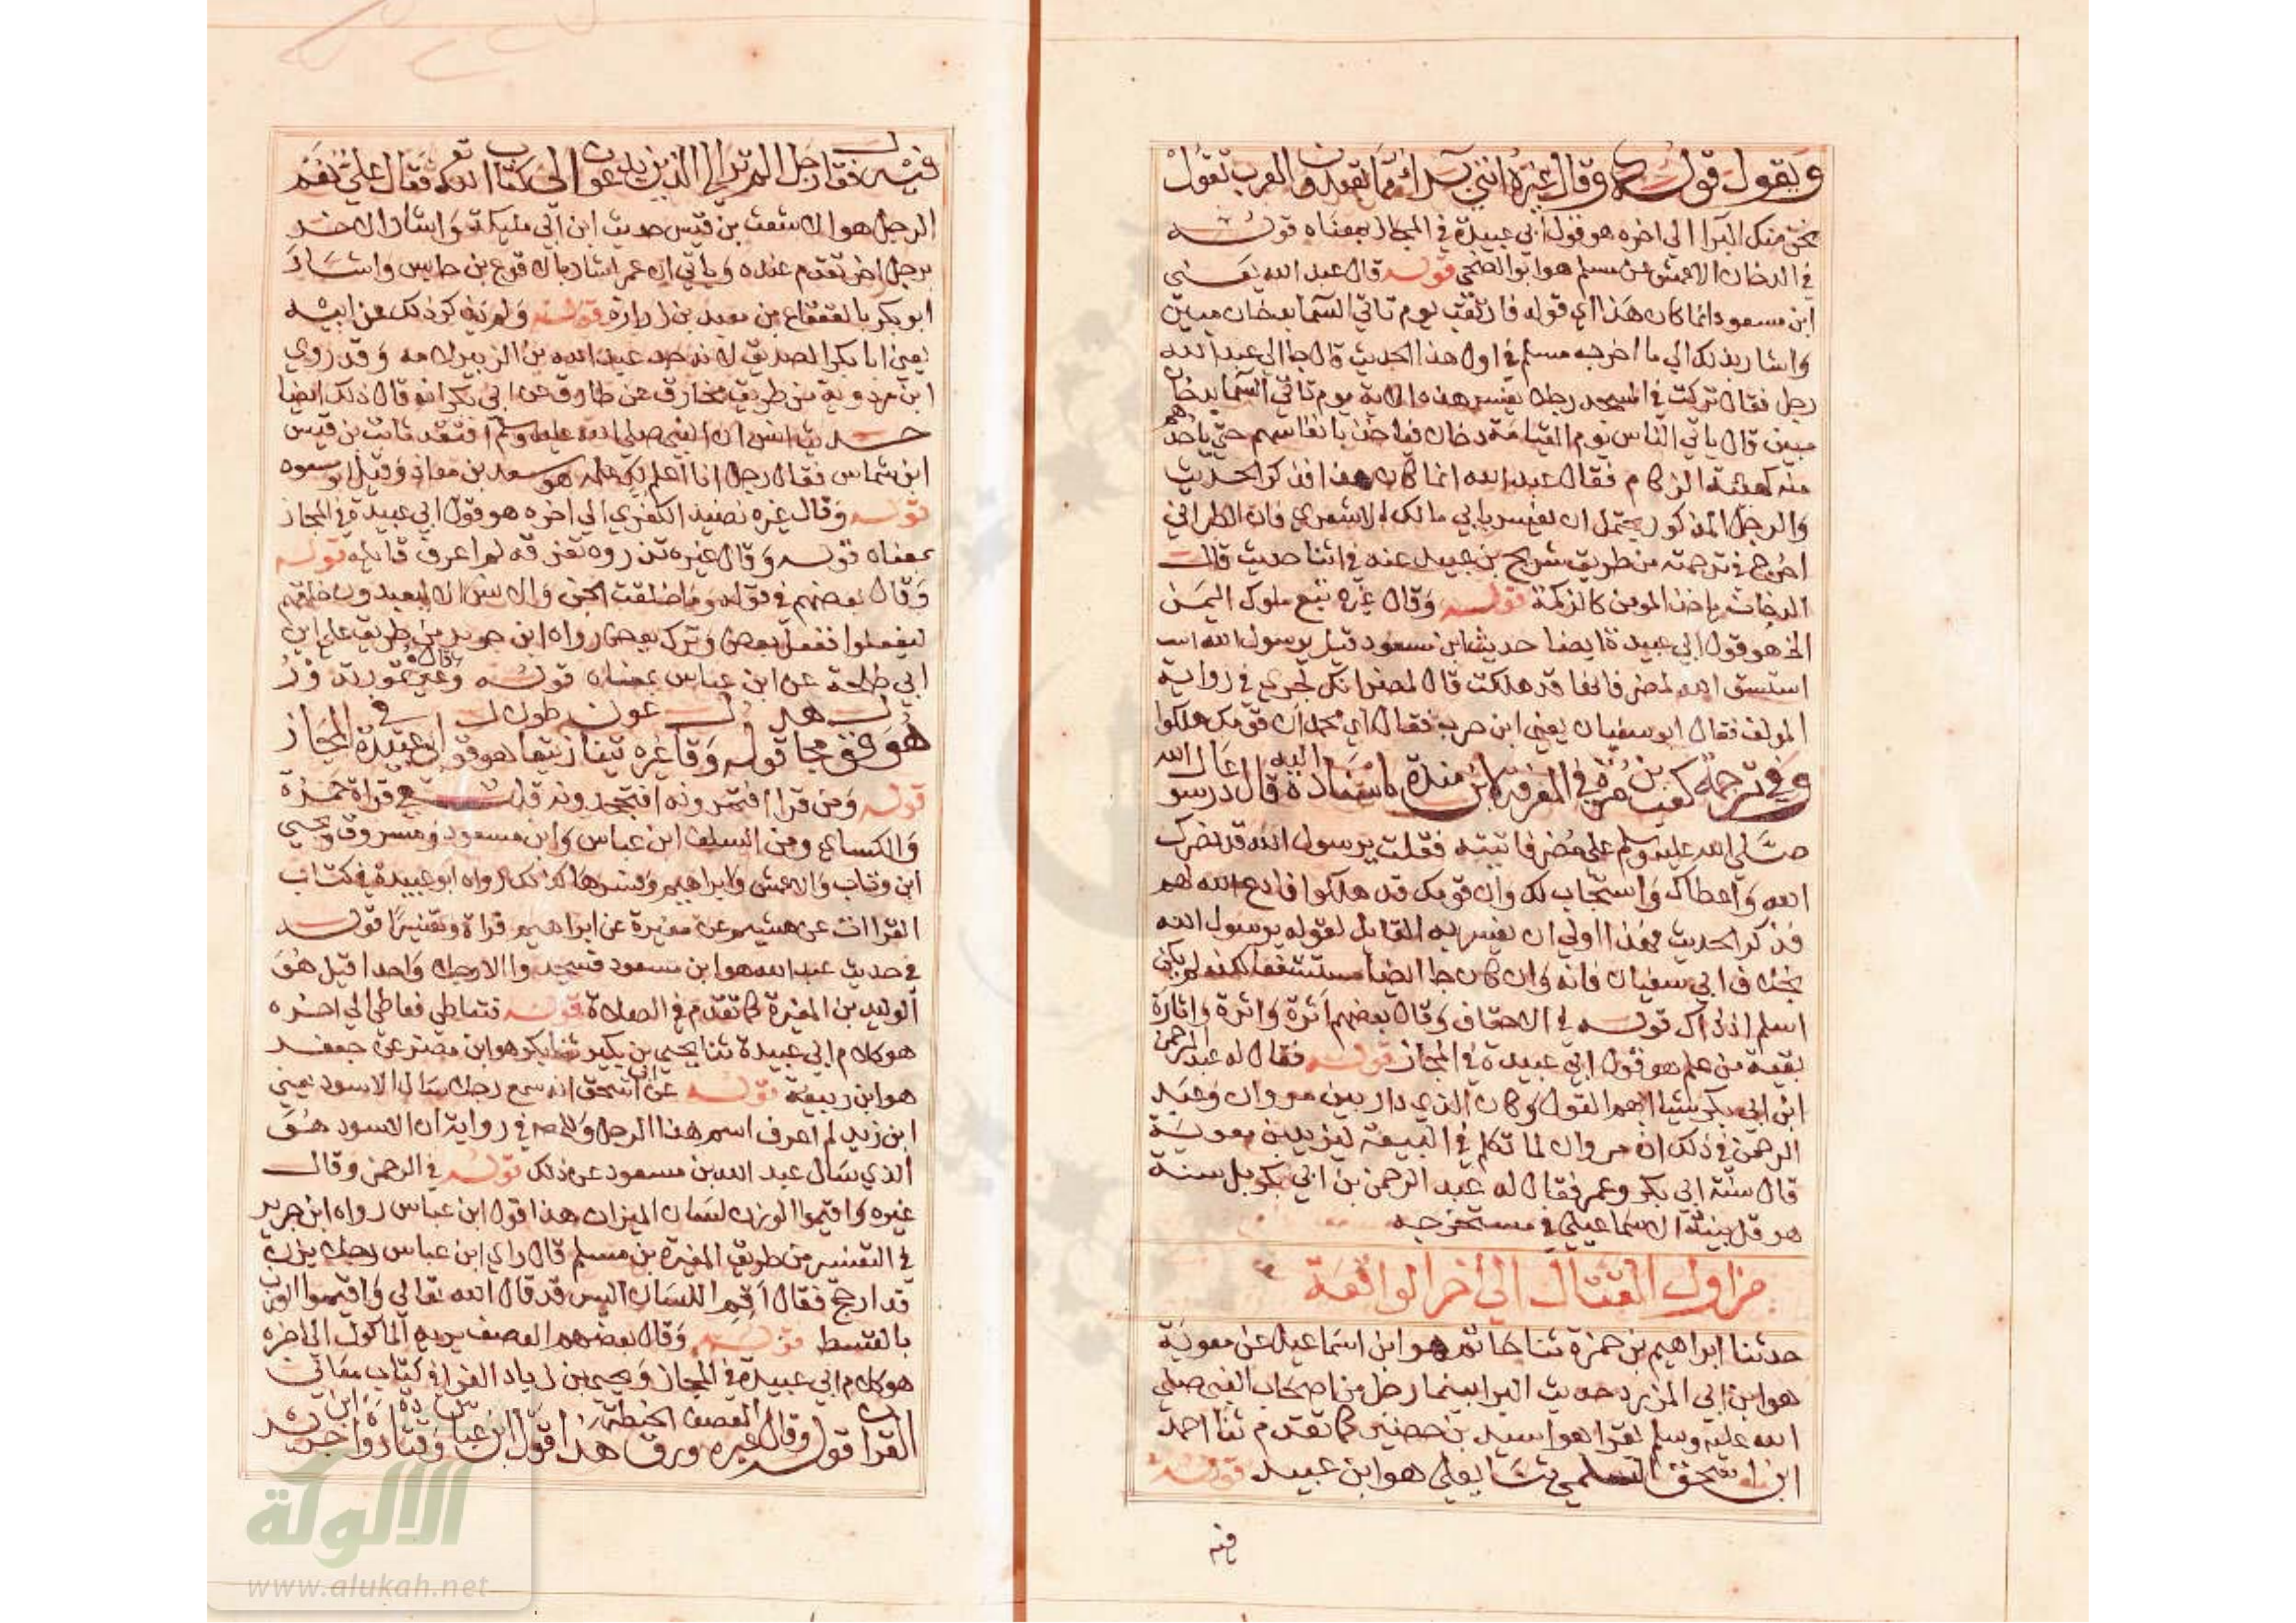 ويقول قوله وقال غيره انني براء مما تعبدون العرب تقول
نحن منك البرا الي اخره هو قول ابي عبيدة في المجاز بمعناه قوله
في الدخان الاعمش عن مسلم هو ابو الضحي قوله قال عبد الله يعني
ابن مسعود انما كان هذا اي قوله فارتقب يوم تاتي السما بدخان مبين
واشار بذلك الي ما اخرجه مسلم في اول هذا الحديث قال جا الي عبد الله
رجل فقال تركت في المسجد رجلا يفسر هذه الاية يوم تاتي السما بدخان
مبين قال ياتي الناس يوم القيامة دخان فياخذ بانفاسهم حتي ياخذهم
منه كهيئة الزكام فقال عبد الله انما كان هذا فذكر الحديث
والرجل المذكور يحتمل ان يفسر بابي مالك الاشعري فان الطبراني
اخرج في ترجمته من طريق شريح بن عبيد عنه في اثنا حديث قال
الدخان ياخذ المومن كالزكمة قوله وقال غيره تبع ملوك اليمن
الخ هو قول ابي عبيدة ايضا حديث ابن مسعود قيل يرسول الله
استسق الله لمضر فانها قد هلكت قال لمضر انك لجري في رواية
المولف فقال ابو سفيان يعني ابن حرب فقال اي محمد ان قومك هلكوا
وفي ترجمة كعب بن مرة في المعرفة لابن مندة باسناده اليه قال دعا رسول الله
صلي الله عليه وسلم علي مضر فاتيته فقلت يرسول الله قد نصرك
الله واعطاك واستجاب لك وان قومك قد هلكوا فادع الله لهم
فذكر الحديث فهذا اولي ان يفسر به القايل لقوله يرسول الله
بخلاف ابي سفيان فانه وان كان جا ايضا مستشفعا لكنه لم يكن
اسلم اذذاك قوله في الاحقاف وقال بعضهم اثرة واثرة واثارة
بقية من علم هو قول ابي عبيدة في المجاز قوله فقال له عبد الرحمن
ابن ابي بكر شيئا ابهم القول وكان الذي دار بين مروان وعبد
الرحمن في ذلك ان مروان لما تكلم في البيعة ليزيد بن معوية
قال سنة ابي بكر وعمر فقال له عبد الرحمن بن ابي بكر بل سنة
هرقل بينه الاسماعيلي في مستخرجه
من اول القتال الي اخر الواقعة
حدثنا ابراهيم بن حمزة ثنا حاتم هو ابن اسماعيل عن معوية
هو ابن ابي المزرد حديث البرا بينما رجل من اصحاب النبي صلي
الله عليه وسلم يقرا هو اسيد بن حضير كما تقدم ثنا احمد
ابن اسحق السلمي ثنا يعلي هو ابن عبيد قوله
فيه
فيه فقال رجل الم تر الي الذين يدعون الي كتاب الله تع فقال علي نعم
الرجل هو الاشعث بن قيس حديث ابن ابي مليكة واشار الاخر
برجل اخر تقدم عنده وياتي ان عمر اشار بالاقرع بن حابس واشار
ابو بكر بالقعقاع بن معبد بن زرارة قوله ولم يذكر ذلك عن ابيه
يعني ابا بكر الصديق لانه جد عبد الله بن الزبير لامه وقد روي
ابن مردوية من طريق مخارق عن طارق عن ابي بكر انه قال ذلك ايضا
حديث انس ان النبي صلي الله عليه وسلم افتقد ثابت بن قيس
ابن شماس فقال رجل انا اعلم لك علمه هو سعد بن معاذ وقيل ابو مسعود
قوله وقال غيره نضيد الكفري الي اخره هو قول ابي عبيدة في المجاز
بمعناه قوله وقال غيره تذروه تفرقه لم اعرف قايله قوله
وقال بعضهم في قوله وما خلقت الجن والانس الا ليعبدون خلقهم
ليفعلوا ففعل بعض وترك بعض رواه ابن جرير من طريق علي ابن
ابي طلحة عن ابن عباس بمعناه قوله وقال غيره تمور تدور
هو في مجا قوله وقال غيره يتنازعون هو قول ابي عبيدة في المجاز
قوله ومن قرا افتمرونه افتجحدونه قلت هي قراة حمزة
والكساي ومن السلف ابن عباس وابن مسعود ومسروق ويحيي
ابن وثاب والاعمش وابراهيم وفسرها كذلك رواه ابو عبيدة في كتاب
القراات عن هشيم عن مغيرة عن ابراهيم قراة وتفسيرا قوله
في حديث عبد الله هو ابن مسعود فسجدوا الا رجلا واحدا قيل هو
الوليد بن المغيرة كما تقدم في الصلاة قوله فتعاطي فعاطي الي اخره
هو كلام ابي عبيدة ثنا يحيي بن بكير ثنا بكر هو ابن مضر عن جعفر
هو ابن ربيعة قوله عن ابي اسحق انه سمع رجلا سال الاسود يعني
ابن زيد لم اعرف اسم هذا الرجل في رواية ان الاسود هو
الذي سال عبد الله بن مسعود عن ذلك قوله في الرحمن وقال
غيره واقيموا الوزن لسان الميزان هذا قول ابن عباس رواه ابن جرير
في التفسير من طريق المغيرة بن مسلم قال راي ابن عباس رجلا يزن
قد ارجح فقال اقم اللسان اليس قد قال الله تعالي واقيموا الوزن
بالقسط قوله وقال بعضهم العصف يريد الماكول الي اخره
هو كلام ابي عبيدة في المجاز ويحيي بن زياد الفرا في كتاب معاني
القران قوله وقال غيره العصف ورق الحنطة هذا قول ابن عباس وقتادة رواه ابن جرير
الألوكة
www.alukah.net